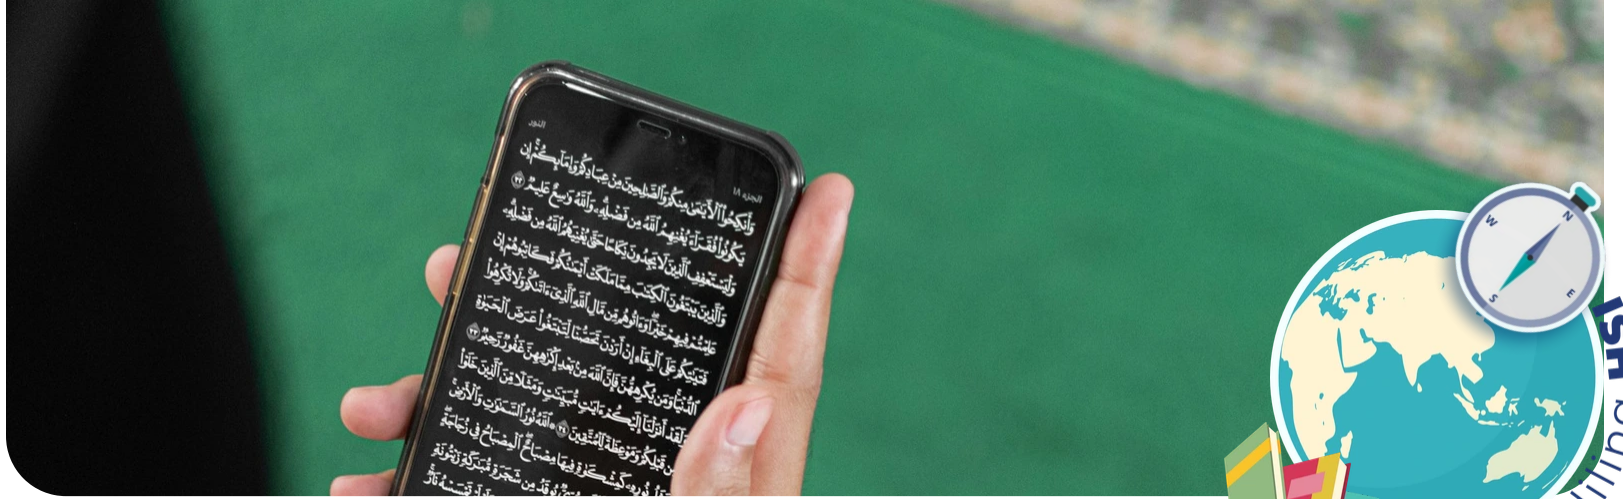 النور
الجزء ١٨
وَأَنكِحُوا۟ ٱلْأَيَٰمَىٰ مِنكُمْ وَٱلصَّٰلِحِينَ مِنْ عِبَادِكُمْ وَإِمَآئِكُمْ ۚ إِن
يَكُونُوا۟ فُقَرَآءَ يُغْنِهِمُ ٱللَّهُ مِن فَضْلِهِۦ ۗ وَٱللَّهُ وَٰسِعٌ عَلِيمٌ ٣٢
وَلْيَسْتَعْفِفِ ٱلَّذِينَ لَا يَجِدُونَ نِكَاحًا حَتَّىٰ يُغْنِيَهُمُ ٱللَّهُ مِن فَضْلِهِۦ ۗ
وَٱلَّذِينَ يَبْتَغُونَ ٱلْكِتَٰبَ مِمَّا مَلَكَتْ أَيْمَٰنُكُمْ فَكَاتِبُوهُمْ إِنْ
عَلِمْتُمْ فِيهِمْ خَيْرًا ۖ وَءَاتُوهُم مِّن مَّالِ ٱللَّهِ ٱلَّذِىٓ ءَاتَىٰكُمْ ۚ وَلَا تُكْرِهُوا۟
فَتَيَٰتِكُمْ عَلَى ٱلْبِغَآءِ إِنْ أَرَدْنَ تَحَصُّنًا لِّتَبْتَغُوا۟ عَرَضَ ٱلْحَيَوٰةِ
ٱلدُّنْيَا ۚ وَمَن يُكْرِههُّنَّ فَإِنَّ ٱللَّهَ مِنۢ بَعْدِ إِكْرَٰهِهِنَّ غَفُورٌ رَّحِيمٌ ٣٣
وَلَقَدْ أَنزَلْنَآ إِلَيْكُمْ ءَايَٰتٍ مُّبَيِّنَٰتٍ وَمَثَلًا مِّنَ ٱلَّذِينَ خَلَوْا۟
مِن قَبْلِكُمْ وَمَوْعِظَةً لِّلْمُتَّقِينَ ٣٤ ۞ ٱللَّهُ نُورُ ٱلسَّمَٰوَٰتِ وَٱلْأَرْضِ ۚ
نُورِهِۦ كَمِشْكَوٰةٍ فِيهَا مِصْبَاحٌ ۖ ٱلْمِصْبَاحُ فِى زُجَاجَةٍ ۖ
يُوقَدُ مِن شَجَرَةٍ مُّبَٰرَكَةٍ زَيْتُونَةٍ
تَمْسَسْهُ نَارٌ ۚ
N
W
E
S